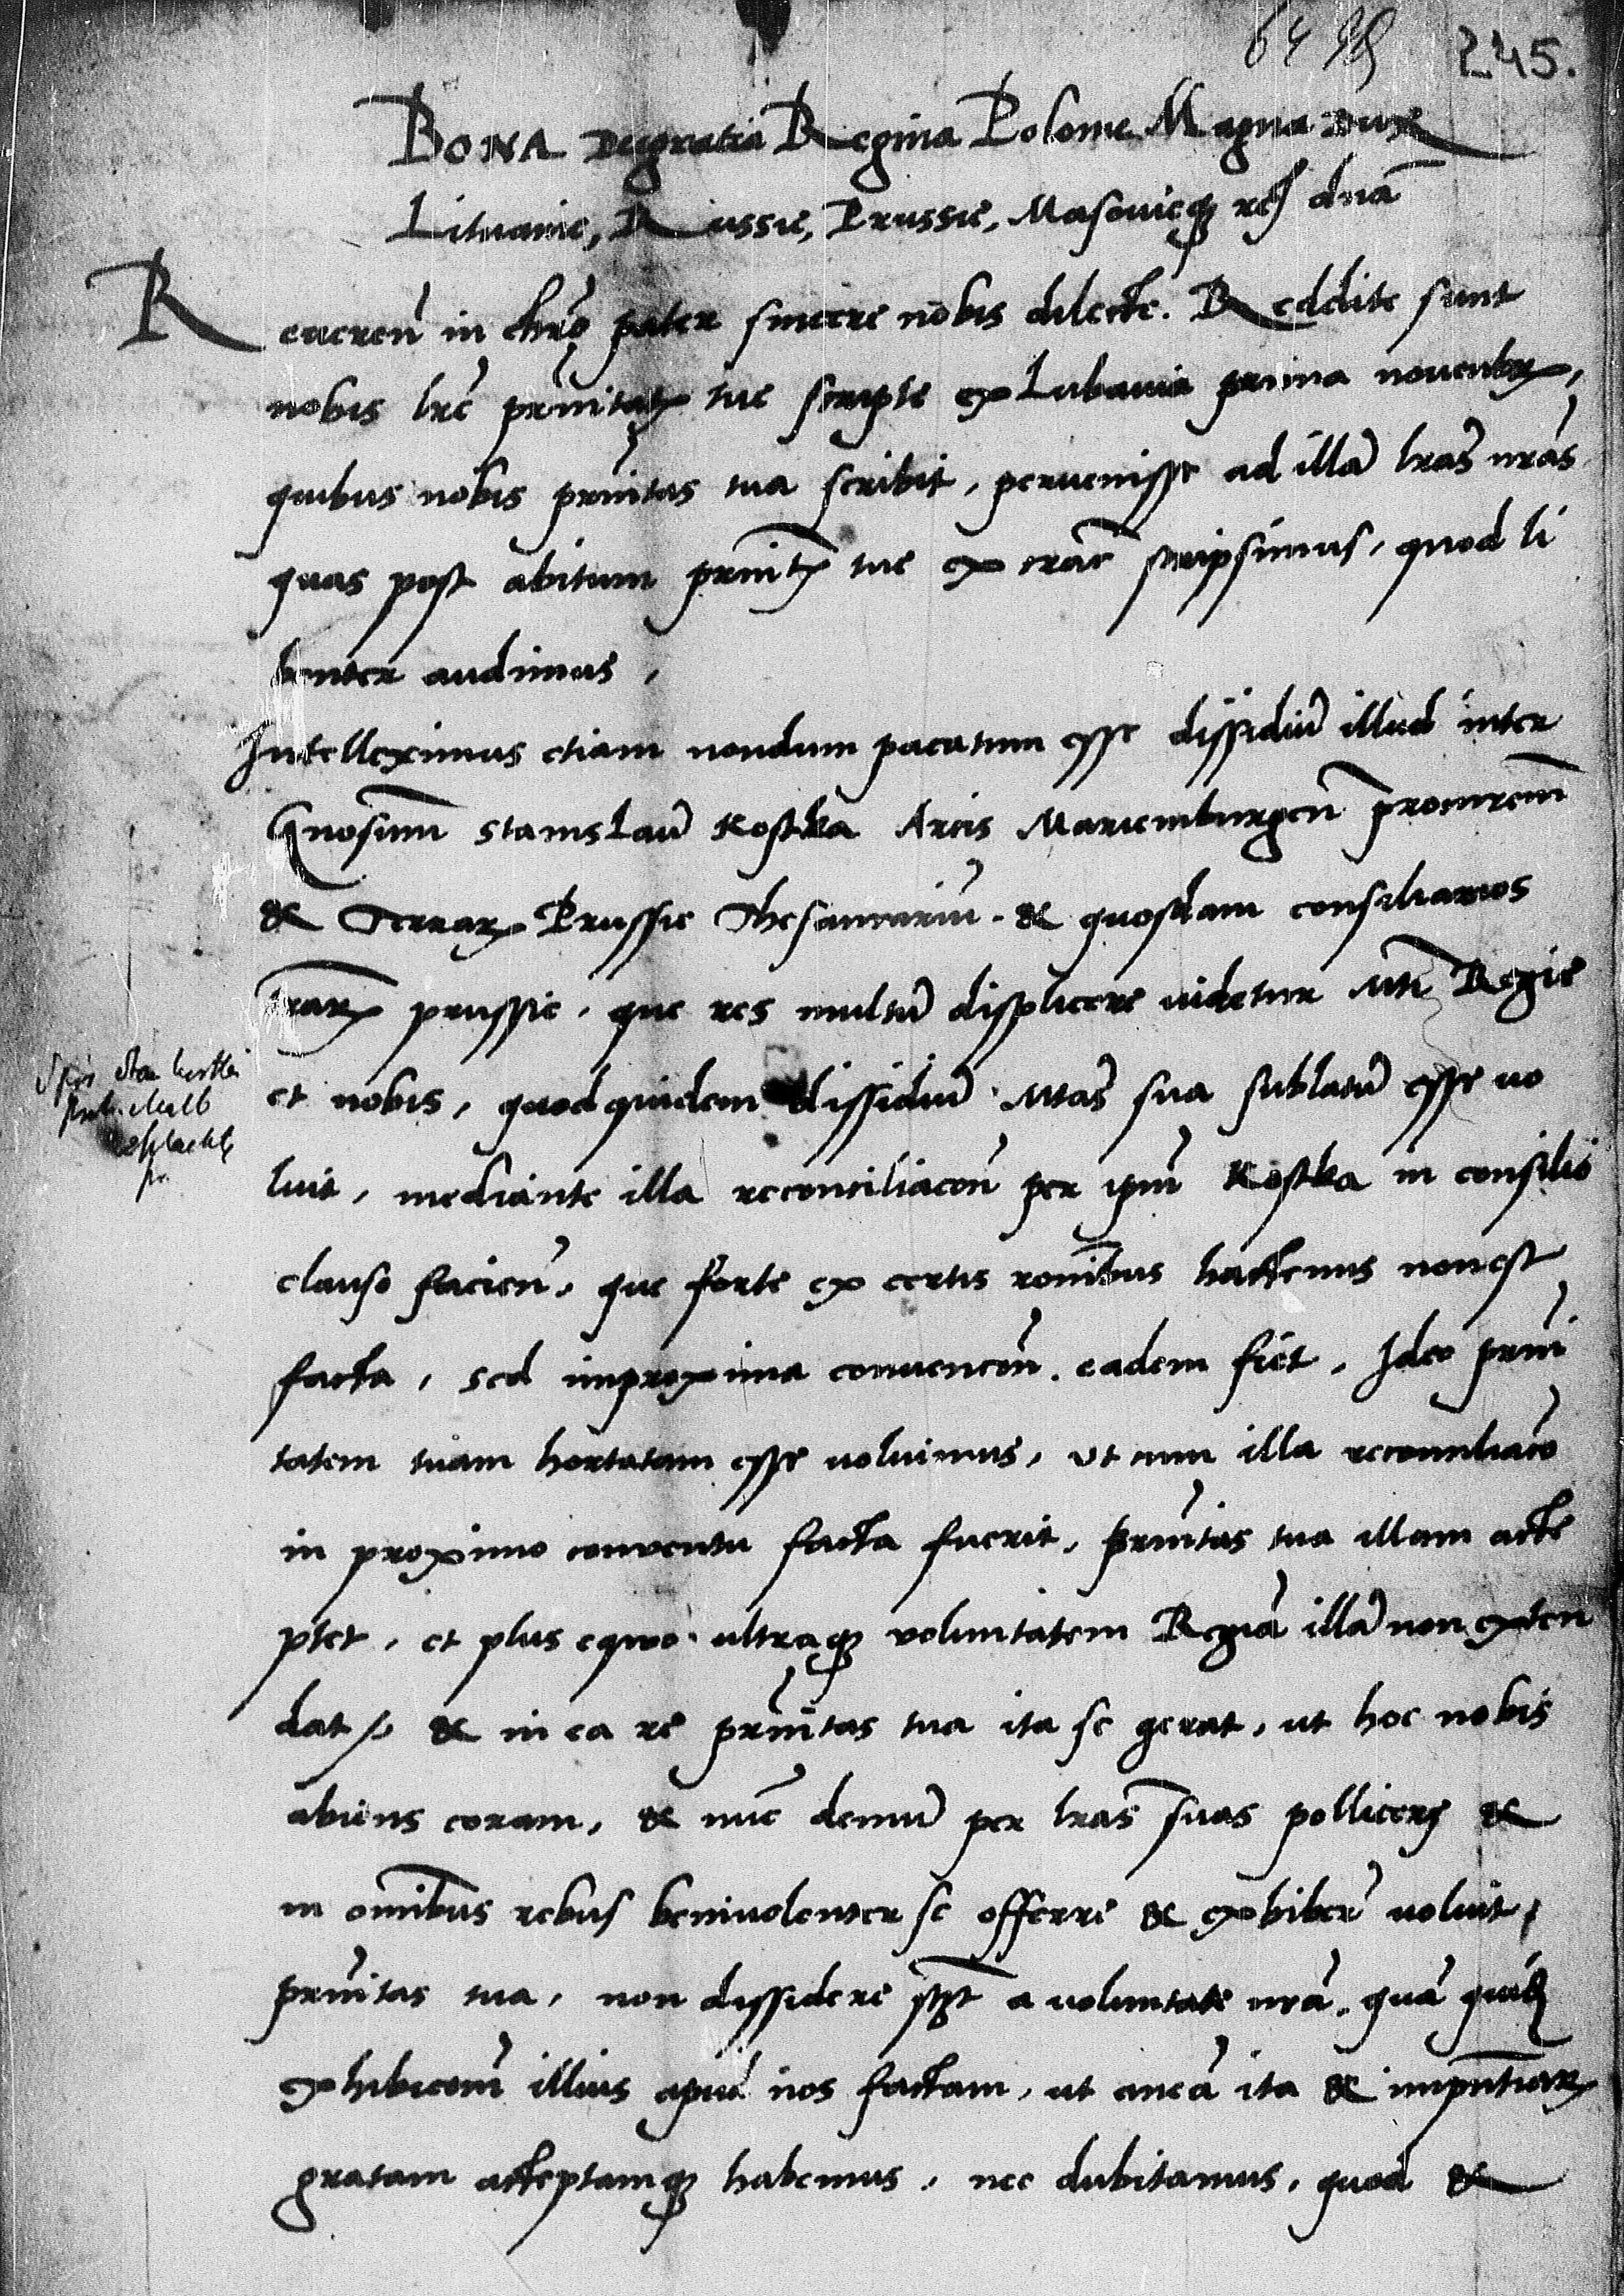 245.
BONA Deigratia Regina Polonie Magna Dux
Lituanie, Russie, Prussie, Masouieq₃ rē₎ dnā
Reueren̄ in chrō pater sincere nobis dilecte. Reddite sunt
nobis lrē prnitat₎ tue scripte ex Lubauia prima nouembr₎,
quibus nobis prnītas tua scribit, peruenisse ad illā lrās nrās
quas post abitum prnit₎ tue ex crāc scripsimus, quod li
benter audimus,
Intelleximus etiam nondum pacatum esse dissidiū illud inter
Gnosum̄ Stanislaū Kostka Arcis Mariemburgen̄ procurem̄
& Terrar₎ Prussie Thesaurariū. & quosdam consiliarios
trar₎ prussie, que res multū displicere uidetur Mti Regie
et nobis, quod quidem dissidiū Mtas̄ sua sublatū esse uo
luit, mediante illa reconciliacōn per ipm̄ Kostka in consilio
clauso facien̄, que forte ex certis ronībus hactenus nonest
facta, sed inproxima conuencōn. eadem fiet, Ideo prnī
tatem tuam hortatam esse uoluimus, ut cum illa reconciliacō
in proximo conuentu facta fuerit, prnītas tua illam acce
ptet, et plus equo ultraq₃ voluntatem Regiā illā non exten
dat, & in ea re prnītas tua ita se gerat, ut hoc nobis
abiens coram, & nūc demū per lrās suas pollicer₎ &
in omībus rebus beniuolenter se offerre & exhiberē uoluit,
prnītas tua, non dissidere a uoluntate nrā. quā quid₎
exhibicōm illius apud nos factam, ut anteā ita & inpn̄tiar₎
gratam acceptamq₃ habemus, nec dubitamus, quod &